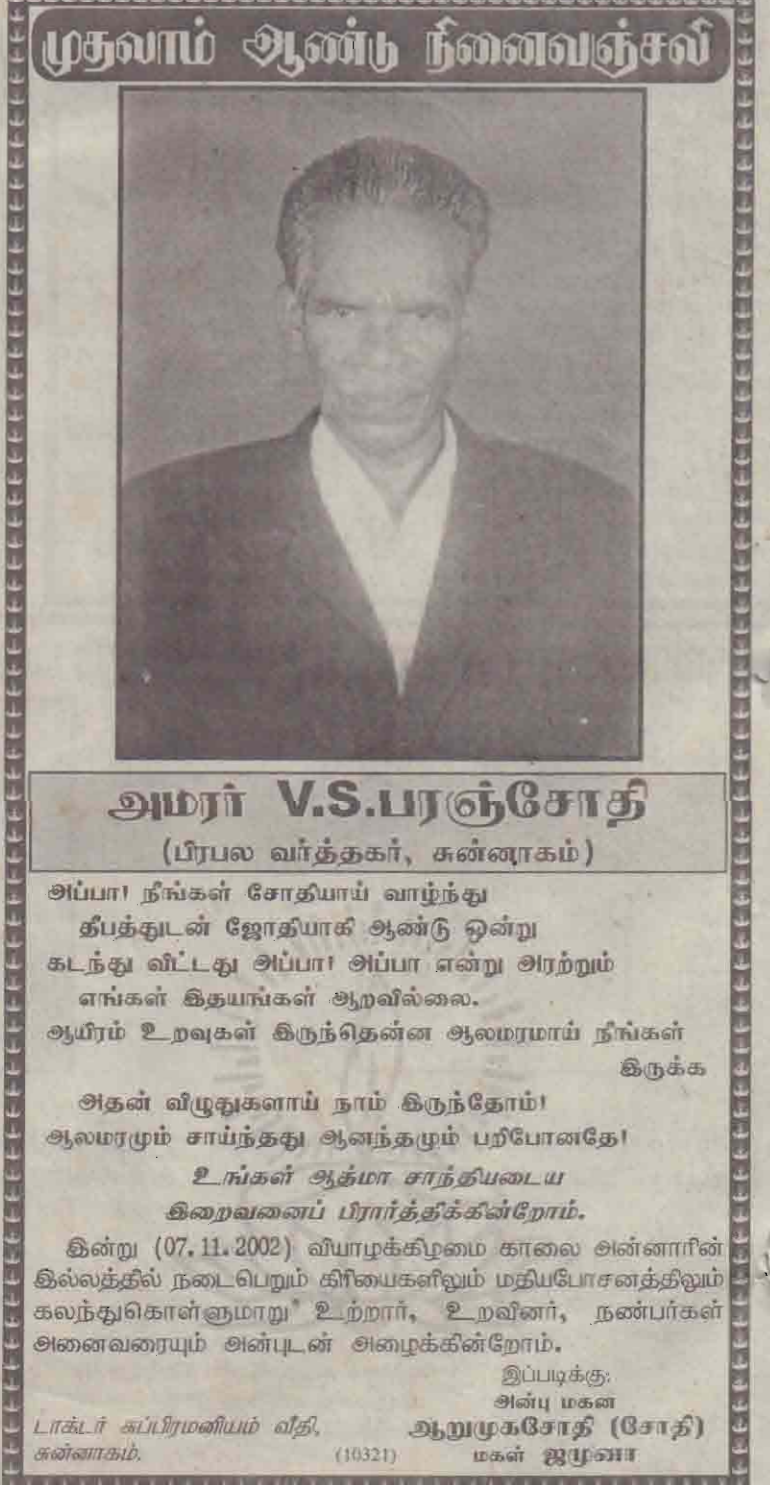 முதலாம் ஆண்டு நினைவஞ்சலி
அமரர் V.S.பரஞ்சோதி
(பிரபல வர்த்தகர், சுன்னாகம்)
அப்பா! நீங்கள் சோதியாய் வாழ்ந்து
தீபத்துடன் ஜோதியாகி ஆண்டு ஒன்று
கடந்து விட்டது அப்பா! அப்பா என்று அரற்றும்
எங்கள் இதயங்கள் ஆறவில்லை.
ஆயிரம் உறவுகள் இருந்தென்ன ஆலமரமாய் நீங்கள்
இருக்க
அதன் விழுதுகளாய் நாம் இருந்தோம்!
ஆலமரமும் சாய்ந்தது ஆனந்தமும் பறிபோனதே!
உங்கள் ஆத்மா சாந்தியடைய
இறைவனைப் பிரார்த்திக்கின்றோம்.
இன்று (07.11.2002) வியாழக்கிழமை காலை அன்னாரின்
இல்லத்தில் நடைபெறும் கிரியைகளிலும் மதியபோசனத்திலும்
கலந்துகொள்ளுமாறு உற்றார், உறவினர், நண்பர்கள்
அனைவரையும் அன்புடன் அழைக்கின்றோம்.
இப்படிக்கு:
அன்பு மகன
டாக்டர் சுப்பிரமனியம் வீதி, ஆறுமுகசோதி (சோதி)
சுன்னாகம். (10321) மகள் ஜமுனா